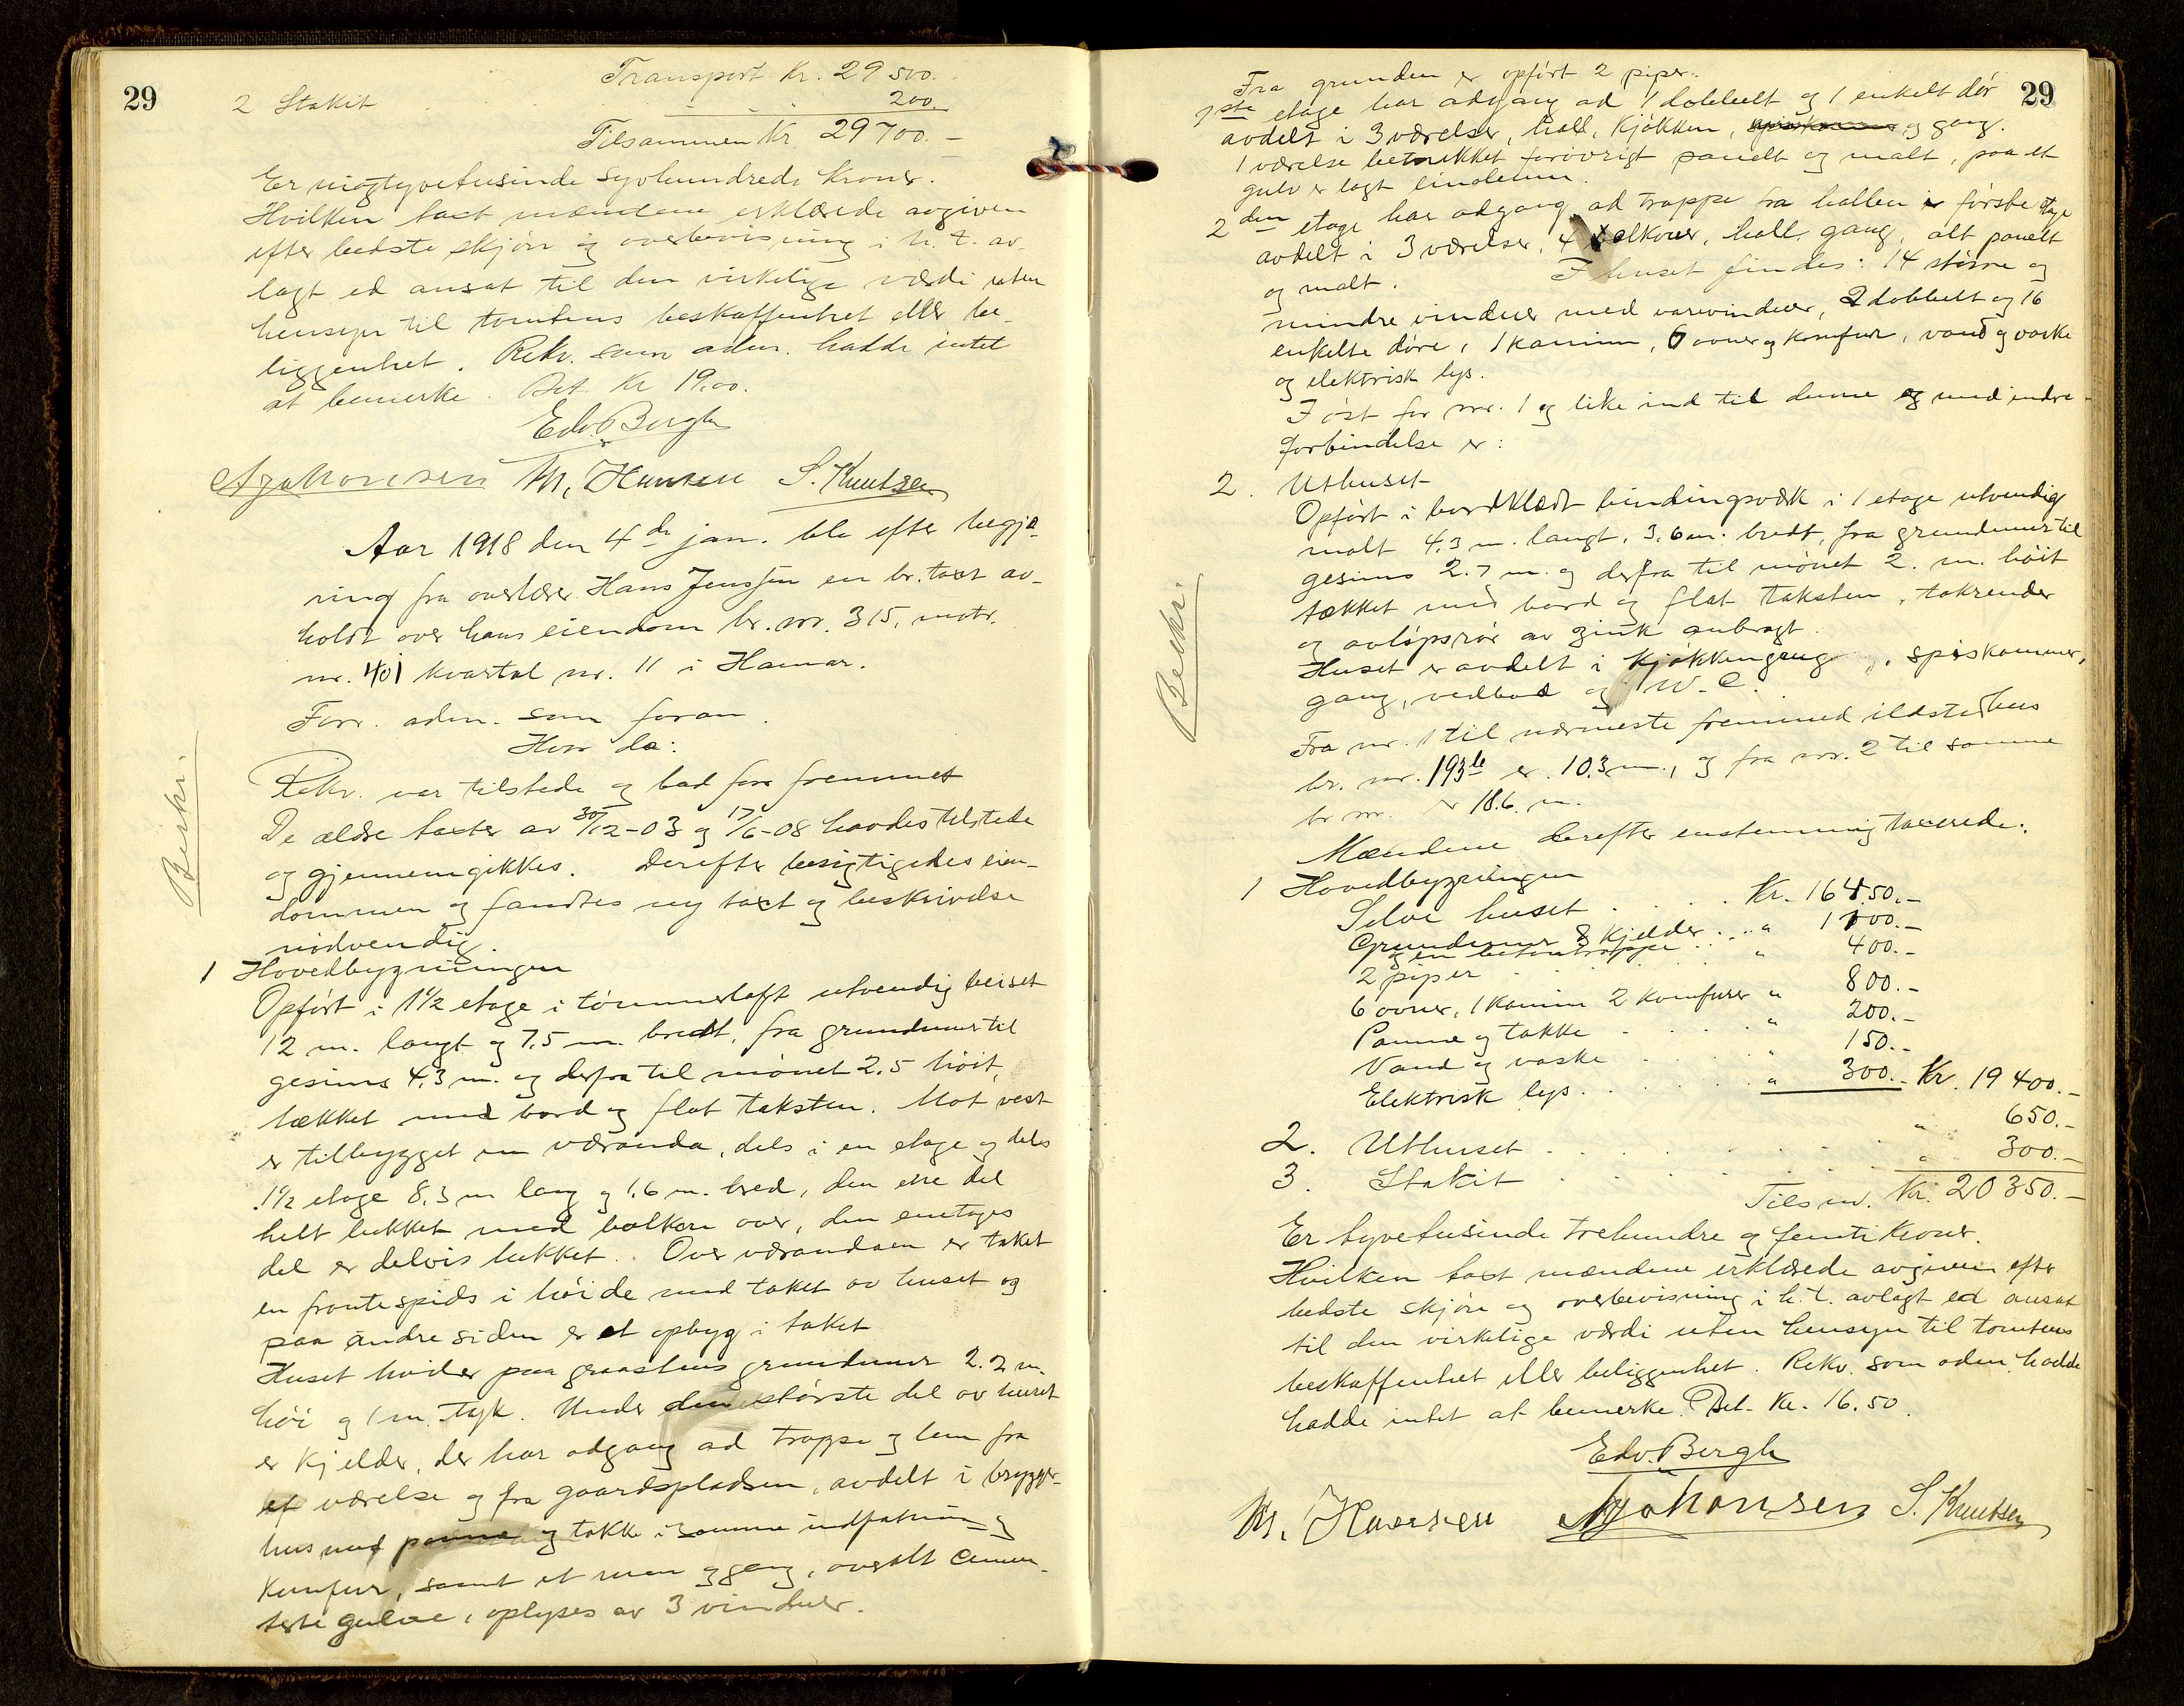 29
Transport Kr. 29500.
2 Stakit - - - 200.
Tilsammen Kr. 29700.-
Er niogtyvetusinde syvhundrede kroner.
Hvilken taxt mændene erklærede avgiven
efter bedste skjøn og overbevisning i h. t. av-
lagt ed ansat til den virkelige værdi uten
hensyn til tomtens beskaffenhet eller be-
liggenhet. Rekv. som adm. hadde intet
at bemerke. Bet. Kr 19.00.
Edv. Bergh
A Johansen M. Hansen S. Knutsen
Aar 1918 den 4de jan. ble efter begjæ-
ring fra overlærer Hans Jenssen en br. taxt av-
holdt over hans eiendom br. nr. 315, matr.
nr. 401 kvartal nr. 11 i Hamar.
Forr. adm. som foran.
Hvor da:
Bеskr.
Rekv. var tilstede og bad forr. fremmet
De ældre taxter av 30/12-03 og 17/6-08 havdes tilstede
og gjennemgikkes. Derefter besigtigedes eien-
dommen og fandtes ny taxt og beskrivelse
nødvendig.
1 Hovedbygningen
Opført i 1 1/2 etage i tømmerlaft utvendig beiset
12 m. langt og 7.5 m. bredt, fra grundmur til
gesims 4.3 m. og derfra til mønet 2.5 høit,
tækket med bord og flat taksten. Mot vest
er tilbygget en væranda, dels i en etage og dels
1 1/2 etage 8.3 m lang og 1.6 m. bred, den ene del
helt lukket med balkon over, den enetages
del er delvis lukket. Over værandaen er taket
en frontespids i høide med taket av huset og
paa andre siden er et opbyg i taket
Huset hviler paa graastens grundmur 2.2 m.
høi og 1 m. tyk. Under den største del av huset
er kjelder, der har adgang ad trappe og lem fra
et værelse og fra gaardspladsen, avdelt i brygger-
hus med panne og takke i samme indfatning og
komfur, samt et rum og gang, overalt cemen-
terte gulve, oplyses av 3 vinduer.
29
Fra grunden er opført 2 piper.
1ste etage har adgang ad 1 dobbelt og 1 enkelt dør
avdelt i 3 værelser, hall, kjøkken, spiskammer og gang.
1 værelse betrukket forøvrigt panelt og malt, paa et
gulv er lagt linoleum.
2den etage har adgang ad trappe fra hallen i første etage
avdelt i 3 værelser, 4 alkover, hall, gang, alt panelt
og malt. I huset findes: 14 større og
mindre vinduer med varevinduer, 2 dobbelt og 16
enkelte døre, 1 kamin, 6 ovner og komfur, vand og vaske
og elektrisk lys.
I øst for nr. 1 og like ind til denne og med indre
forbindelse er:
Beskr.
2. Uthuset
Opført i bordklædt bindingsværk i 1 etage utvendig
malt 4.3 m. langt, 3.6 m. bredt, fra grundmur til
gesims 2.7 m. og derfra til mønet 2. m. høit
tækket med bord og flat taksten, takrender
og avløpsrør av zink anbragt.
Huset er avdelt i kjøkkengang, spiskammer,
gang, vedbod og W.C.
Fra nr. 1 til nærmeste fremmed ildsted hus
br. nr. 193b er 10.3 m., og fra nr. 2 til samme
br nr. er 18.6 m.
Mændene derefter enstemmig taxerede:
1 Hovedbygningen
Selve huset . . . . Kr. 16450.-
Grundmur & Kjelder . . . " 1100.-
og en betontrappe
2 piper . . . . " 400.-
6 ovner, 1 kamin 2 komfurer " 800.-
Panne og takke . . . " 200.-
Vand og vaske . . . . " 150.-
Elektrisk lys. . . . . " 300.- Kr. 19400.-
2. Uthuset . . . . . . " 650.-
3. Stakit . . . . . . " 300.-
Tilsm. Kr. 20350.-
Er tyvetusinde trehundre og femti kroner.
Hvilken taxt mændene erklærede avgiven efter
bedste skjøn og overbevisning i h. t. avlagt ed ansat
til den virkelige værdi uten hensyn til tomtens
beskaffenhet eller beliggenhet. Rekv. som adm. hadde
hadde intet at bemerke. Bet. Kr. 16.50.
Edv. Bergh
M. Hansen A Johansen S. Knutsen